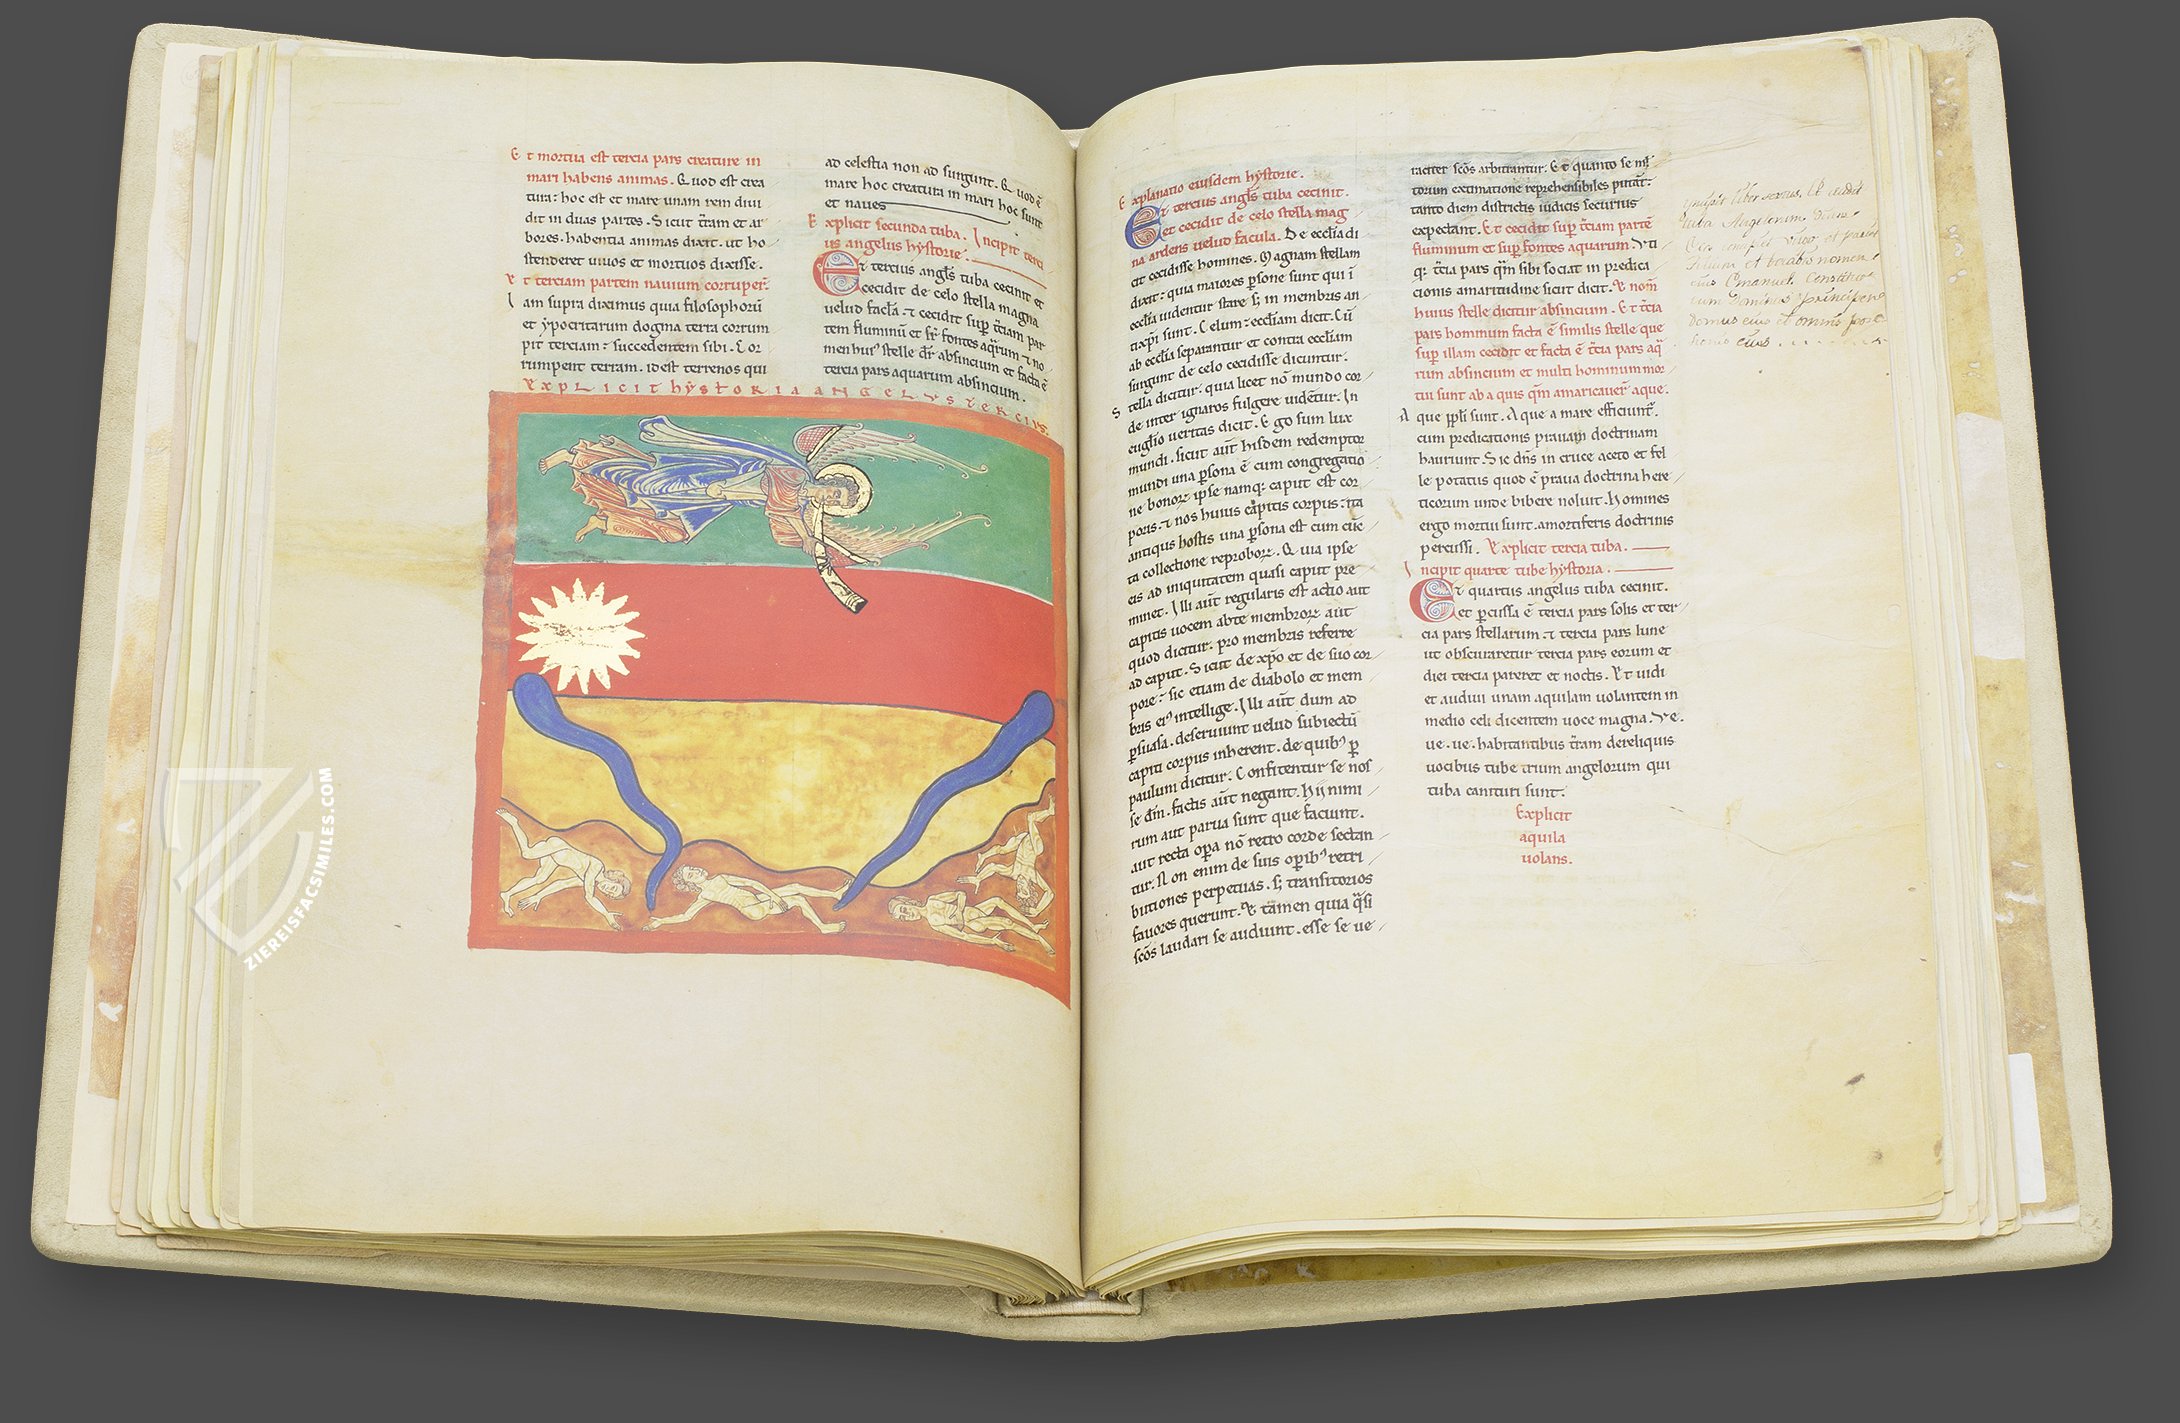 Et mortua est tercia pars creature in
mari habens animas. Quod est crea
tura: hoc est et mare unam rem divi
dit in duas partes. Sicut tr̄am et ar
bores. habentia animas dixit. ut ho
stenderet vivos et mortuos dixisse.
Et terciam partem navium corruper̄.
Iam supra diximus quia filosophorū
et ypocritarum dogma terra corrum
pit terciam: succedentem sibi. Cor
rumpent terram. id est terrenos qui
ad celestia non ad surgunt. Quod ē
mare hoc creatura in mari hoc sunt
et naves
Explicit secunda tuba. Incipit terci
us angelus hystorie.
Et tercius angl̄s tuba cecinit et
cecidit de celo stella magna
velud facl̄a. et cecidit sup̄ tc̄iam par
tem fluminū et sr̄ fontes aq̄rum et no
men hus' stelle dr̄ absincium et facta ē
tercia pars aquarum absincium.
EXPLICIT hystoria angelus tercius.
Explanatio eiusdem hystorie.
Et tercius angl̄s tuba cecinit.
et cecidit de celo stella mag
na ardens velud facula. De eccl̄ia di
cit cecidisse homines. Magnam stellam
dixit: quia maiores p̄sone sunt qui ī
eccl̄ia videntur stare s; in membris an
tixp̄i sunt. Celum: eccl̄iam dicit. Cū
ab eccl̄ia separantur et contra eccl̄iam
surgunt de celo cecidisse dicuntur.
Stella dicitur. quia licet nō mundo cor
de inter ignaros fulgere vidēt̄ur. In
eugl̄io veritas dicit. Ego sum lux
mundi. sicut aūt hisdem redemptor
mundi una p̄sona ē cum congregatio
ne bonor̄ ipse namq; caput est cor
poris. et nos huius cāpitis corpus: ita
antiqus hostis una p̄sona est cum cūc
ta collectione reprobor̄. Quia ipse
eis ad iniquitatem quasi caput pre
minet. Illi aūt regularis est actio aut
capitis vocem ab te membror̄ aūt
quod dicitur. pro membris referre
ad caput. Sicut de xp̄o et de suo cor
pore: sic etiam de diabolo et mem
bris ei' intellige. Illi aūt dum ad
p̄suasa. deserviunt velud subiectū
capiti corpus inherent. de quib' p̄
paulum dicitur. Confitentur se nos
se dm̄. factis aūt negant. Hij nimi
rum aut parva sunt que faciunt.
aut recta op̄a nō retro corde sectan
tur. Non enim de suis op̄ib' retri
butiones perpetuas. s; transitorios
favores querunt. Et tamen quia q̄si
sc̄os laudari se audiunt. esse se ve
raciter sc̄os arbitrantur. Et quanto se ml̄
torum extimatione reprehensibiles putāt:
tanto diem districtis iudicis securius
expectant. Et cecidit sup̄ tc̄iam partē
fluminum et sup̄ fontes aquarum. Uti
q; tc̄ia pars qm̄ sibi sociat in predica
cionis amaritudine sicut dicit. Et nom̄
huius stelle dicitur absincium. Et tc̄ia
pars hominum facta ē similis stelle que
sup̄ illam cecidit et facta ē tc̄ia pars aq̄
rum absincium et multi hominum mor
tui sunt ab aquis qm̄ amaricaver̄ aque.
Aque pp̄li sunt. Aque a mare efficiunt̄.
cum predicationis pravam doctrinam
hauriunt. Sic dn̄s in cruce aceto et fel
le potatus quod ē prava doctrina here
ticorum unde bibere noluit. Homines
ergo mortui sunt. amortiferis doctrinis
percussi. Explicit tercia tuba.
Incipit quarte tube hystoria.
Et quartus angelus tuba cecinit.
et p̄cussa ē tercia pars solis et ter
cia pars stellarum et tercia pars lune
ut obscuraretur tercia pars eorum et
diei tercia pareret et noctis. Et vidi
et audivi unam aquilam volantem in
medio celi dicentem voce magna. Ve.
ve. ve. habitantibus tr̄am dereliquis
vocibus tube trium angelorum qui
tuba canturi sunt.
Explicit
aquila
volans.
et vocabis nomen
eius Emanuel.
Dominus principem
domus eius et omnis
eius
ZIEREISFACSIMILES.COM